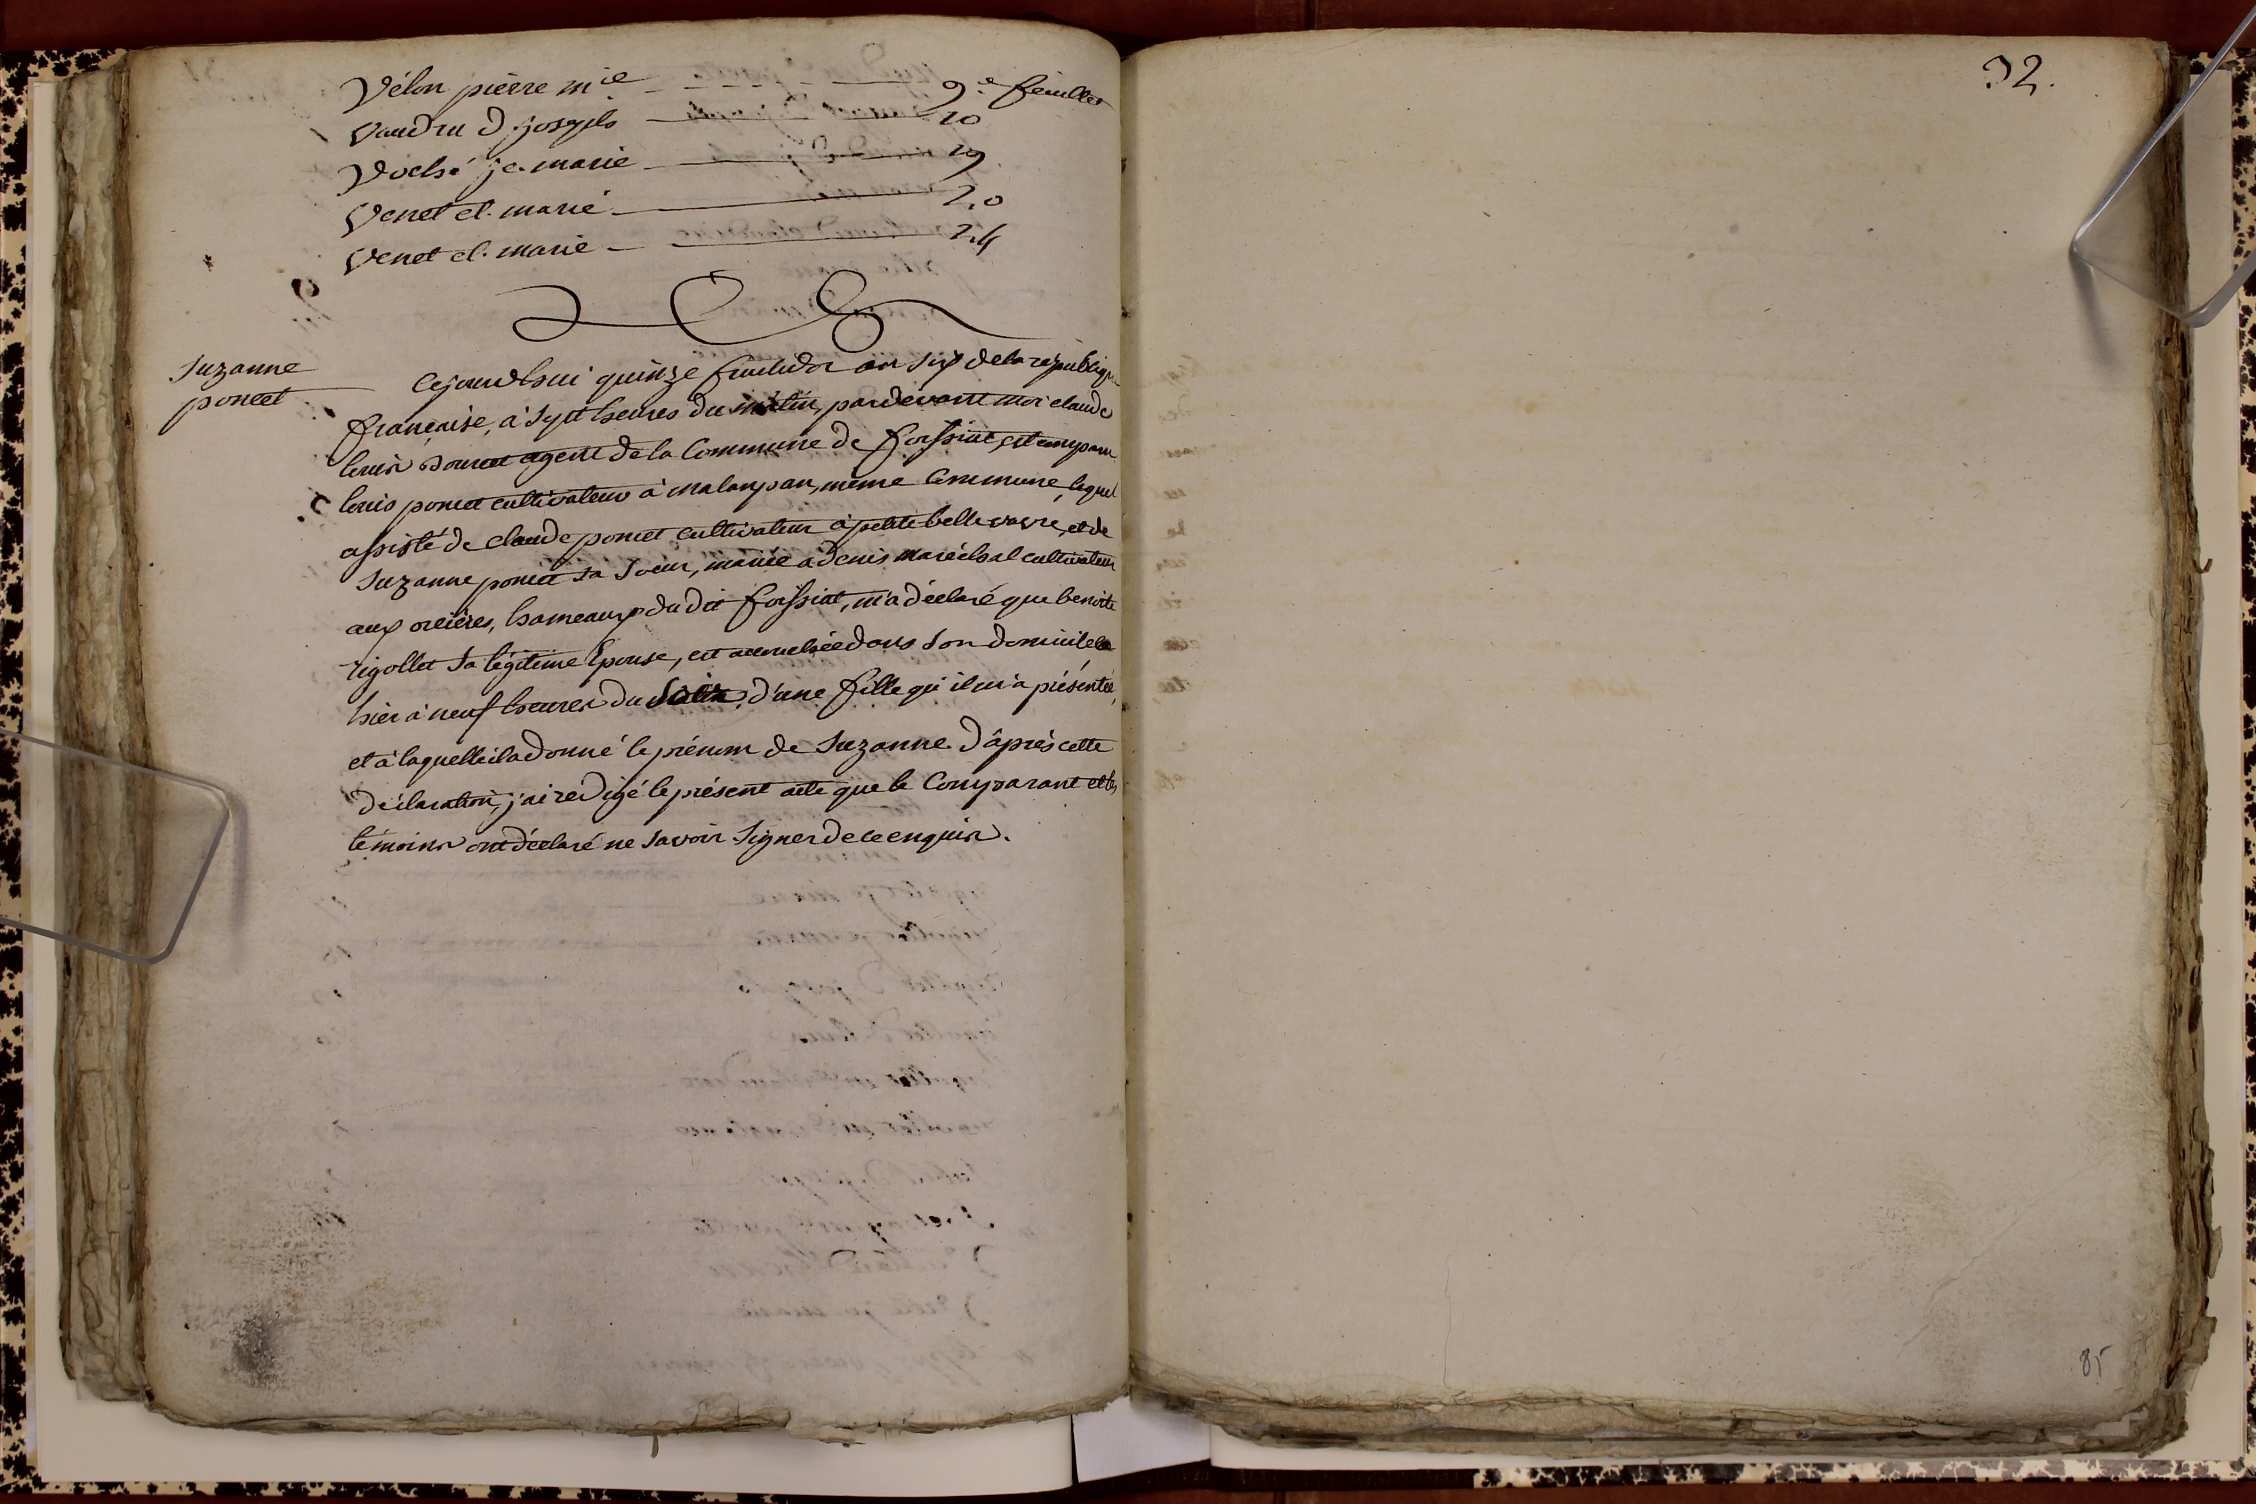 Vélon pierre mie - - - - 9.e feuillet
Vaudru d. joseph — 10
Voché je. marie — 19
Venet cl. marie — 20
Venet cl. marie — 24
Suzanne
poncet
Cejourdhui quinze fructidor an six de la république
française, à sept heures du matin, pardevant moi claude
louis agent de la Commune de foissiat, est comparu
louis poncet cultivateur à malaupan, même Commune, lequel
assisté de claude poncet cultivateur à petite bellevavre, et de
Suzanne poncet sa Soeur, mariée a denis maréchal cultivateur
aux orcières, hameaux du dit foissiat, m'a déclaré que benoite
rigollet Sa légitime Epouse, est accouchée dans Son domicile
hier à neuf heures du Soir, d'une fille qu'il m'a présentée,
et à laquelle il a donné le prénom de Suzanne. D'après cette
déclaration, j'ai redigé le présent acte que le Comparant et les
témoins ont déclaré ne Savoir Signer de ce enquis.
32.
85